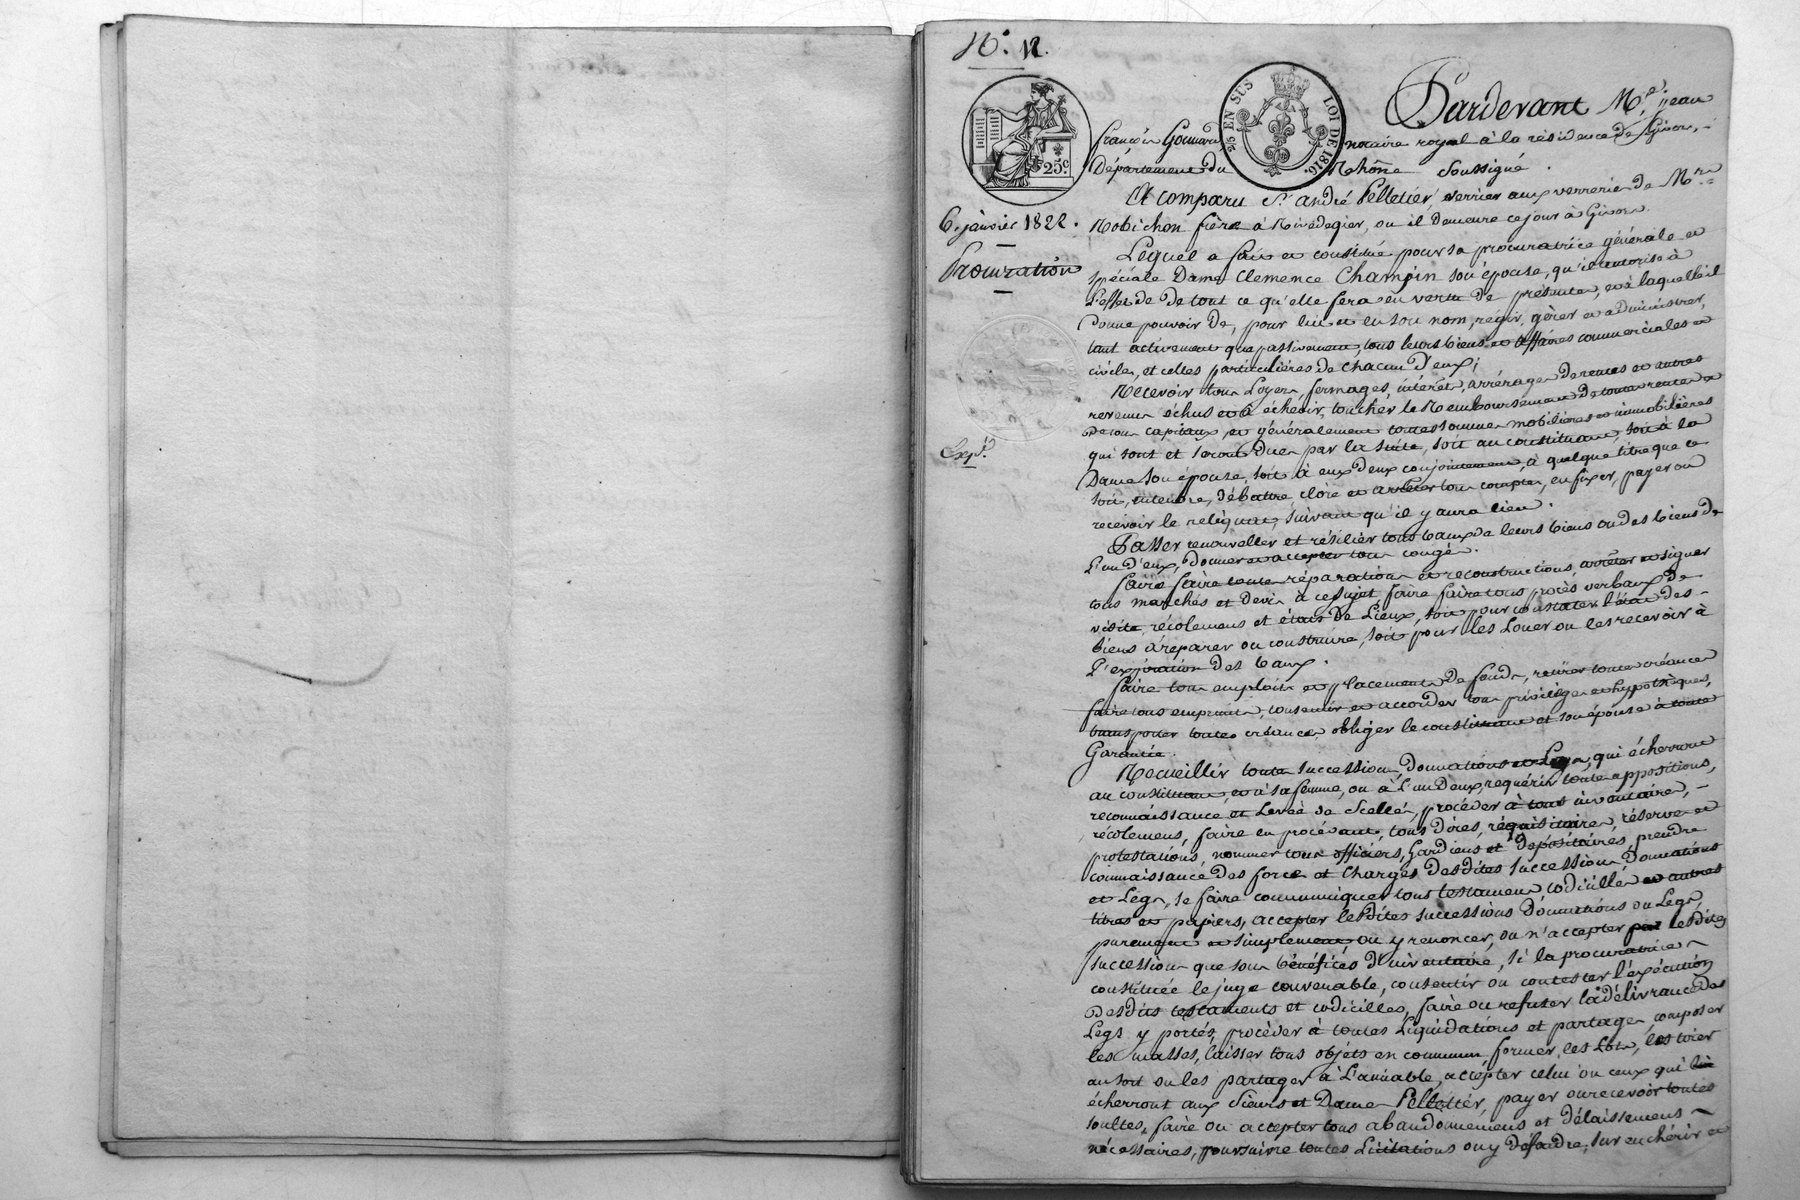 N.° 12.
25 EN SUS
LOI DE 1816.
25.c
Pardevant M.e Jean
françois Gonnard notaire royal à la résidence de Givors,
Département du Rhône soussigné.
A comparu S.r andré Pelletier, verrier aux verreries de M.rs
6 janvier 1822.
Robichon frères à Rivedegier, ou il demeure ce jour à Givors.
Procuration
Lequel a fait et constitué pour sa procuratrice générale et
spéciale Dame Clemence Champin son épouse, qu'il autorise à
l'effet de de tout ce qu'elle fera en vertu de présentes, et à laquelle il
donne pouvoir de, pour lui et en son nom, régir, gérer et administrer,
tant activement que passivement, tous leurs biens et affaires commerciales et
civiles, et celles particulières de chacun d'eux;
Recevoir tous Loyers, fermages, intérêts, arrérages de rentes et autres
revenus échus et à échoir, toucher le Remboursement de toutes rentes et
de tous capitaux et généralement toutes sommes mobilières et immobilières
qui sont et seront dues par la suite, soit au constituant, soit à la
Expé.
Dame son épouse, soit à eux deux conjointement, à quelque titre que ce
soit, entendre, débattre clore et arrêter tous comptes, en fixer, payer ou
recevoir le reliquat, suivant qu'il y aura lieu.
Passer renouveller et résilier tous baux de leurs biens ou des biens de
l'un d'eux, donner et accepter tous congés.
faire faire toutes réparations et reconstructions, arrêter et signer
tous marchés et devis à ce sujet faire faire tous procès verbaux de
visite, récolemens et états de Lieux, soit pour constater l'état des
biens à réparer ou construire, soit pour les Louer ou les recevoir à
l'expiration des baux.
faire tous emplois et placemens de fonds, retirer toutes créances
faire tous emprunts, consentir et accorder tous privilèges et hypothèques,
transporter toutes créances, obliger le constituant et son épouse à toute
Garantie.
Recueillir toutes successions, Donnations et Legs, qui écherront
au constituant, et à sa femme, ou à l'un d'eux, requérir toute appositions,
reconnaissance et Levée de Scellés, procéder à tous inventaires,
récolemens, faire en procédant, tous dires, réquisitoires, réserves et
protestations, nommer tous officiers, Gardiens et dépositaires, prendre
connaissance des forces et charges desdites successions Donnations
et Legs, se faire communiquer tous testamens codicilles et autres
titres et papiers, accepter lesdites successions Donnations ou Legs
purement et simplement, ou y renoncer, ou n'accepter lesdites
successions que sous bénéfices d'inventaire, si la procuratrice
constituée le juge convenable, consentir ou contester l'exécution
desdits testaments et codicilles, faire ou refuser la délivrance des
Legs y portés, procéder à toutes Liquidations et partages, composer
les masses, laisser tous objets en commun, former les Lots, les tirer
au sort ou les partager à l'amiable, accepter celui ou ceux qui
écherront aux Sieurs et Dame Pelletier, payer ou recevoir toutes
soultes, faire ou accepter tous abandonnemens et délaissemens
nécessaires, poursuivre toutes Licitations ou y défendre, sur enchérir et